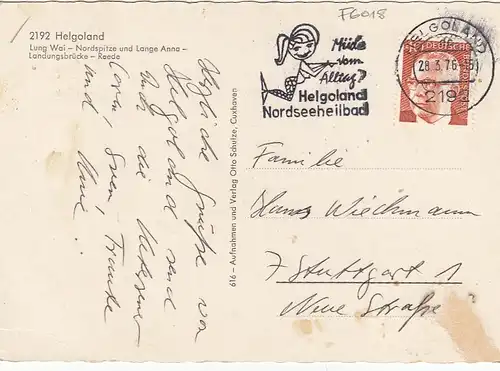 F6018
2192 Helgoland
Lung Wai – Nordspitze und Lange Anna –
Landungsbrücke – Reede
Müde
vom
Alltag?
Helgoland
Nordseeheilbad
HELGOLAND
28.3.76-15
2192
DEUTSCHE
616 – Aufnahmen und Verlag Otto Schulze, Cuxhaven
Herzliche Grüße von
Helgoland
und die
Sven - Frauke
und
Familie
Hans Wiechmann
7 Stuttgart 1
Neue Straße